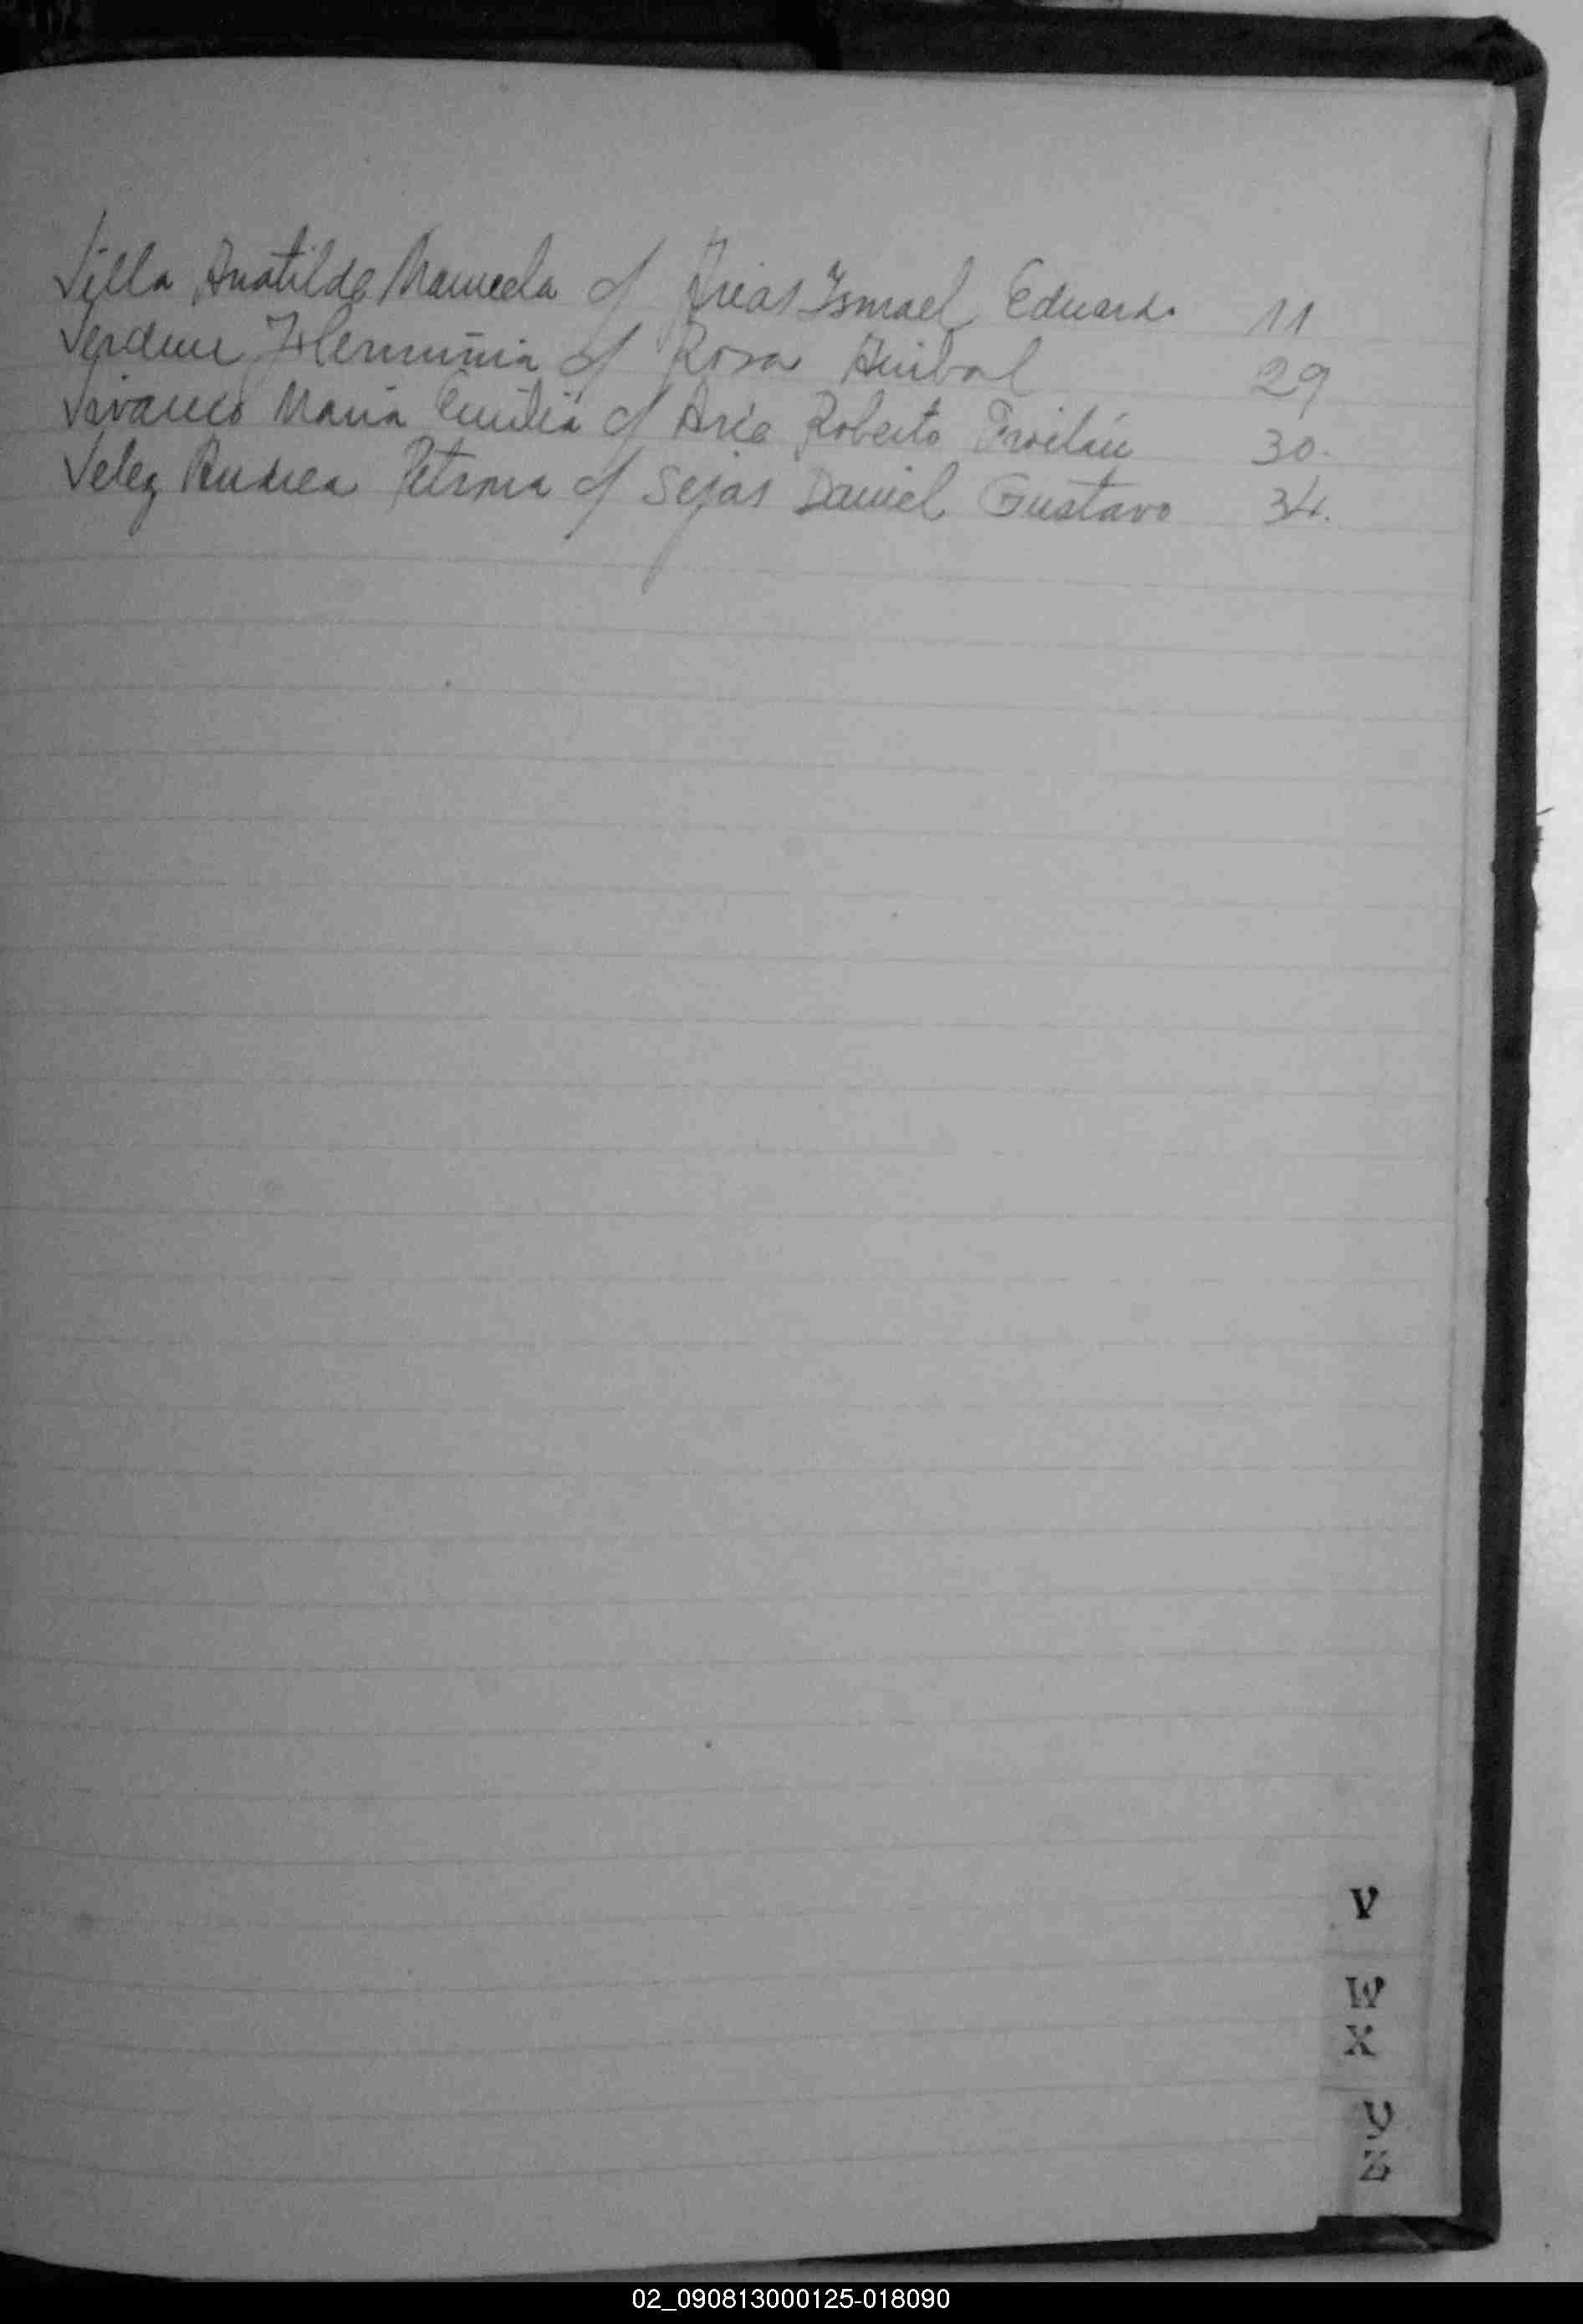 Villa Anatilde Manuela c/ Arias Ismael Eduardo 11
Verdun Herminia c/ Rosa Anibal 29
Vivanco Maria Emilia c/ Arce Roberto Froilán 30.
Velez Andrea Petrona c/ Sejas Daniel Gustavo 34.
V
W
X
Y
Z
02_090813000125-018090